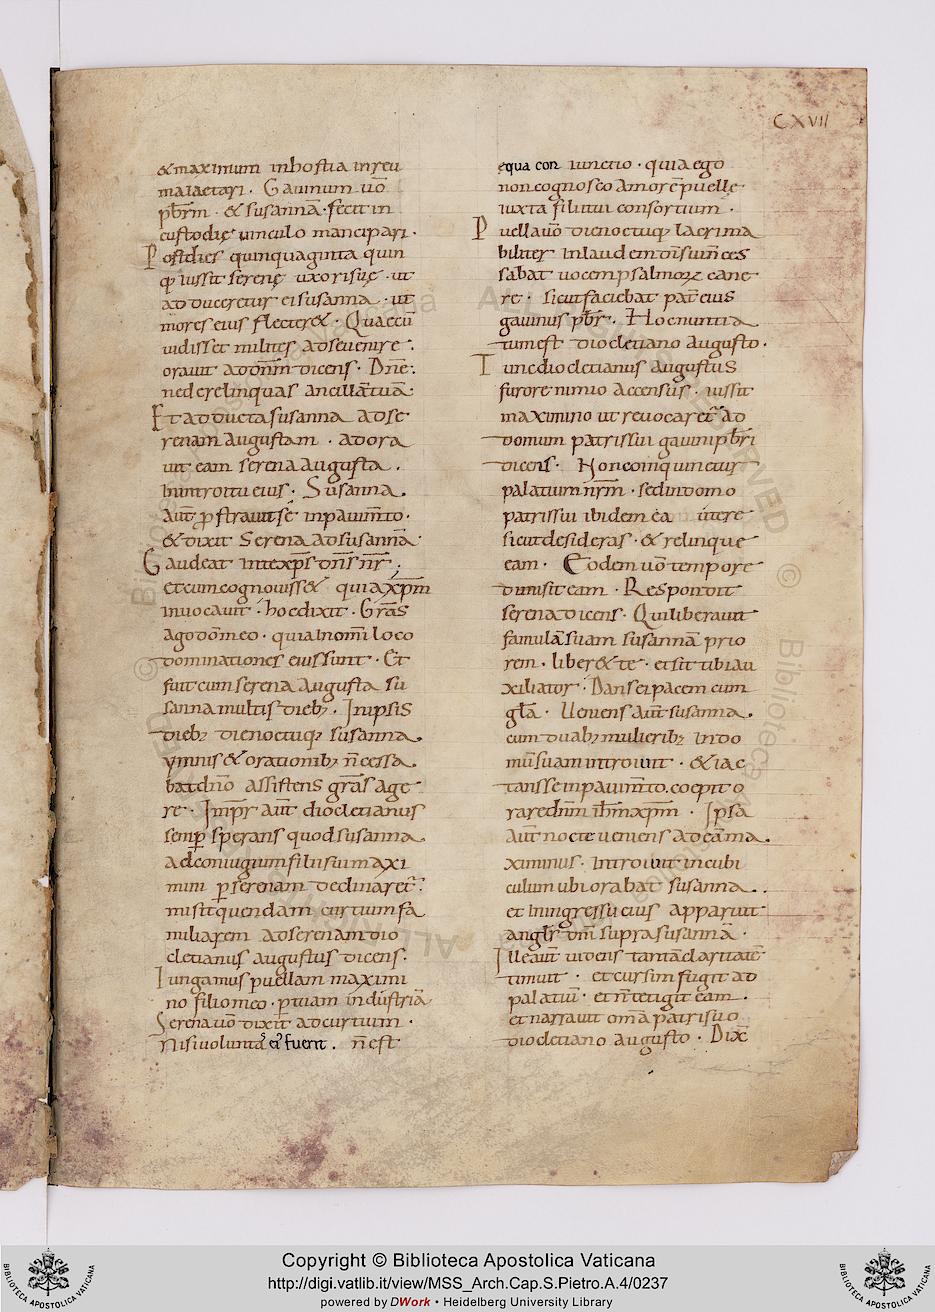 CXVII
& maximum inhostia inreu
malaetari. Gauinum uō
pbrm. & susannā. fecit in
custodię uinculo mancipari.
Postdies quinquaginta quin
q; iussit serenę uxorisuę. ut
adduceretur eisusanna. ut
mores eius flecter&. Quaecū
uidisset milites adseuenire.
orauit addnm dicens. Dnē.
nederelinquas ancillātuā.
Et adducta susanna adse
renam augustam. adora
uit eam serena augusta.
Inintroitu eius. Susanna.
aūt pstrauit sē inpauimto.
& dixit Serena adsusannā.
Gaudeat intexps dns nr;
etcumcognouiss& quiaxpm
inuocauit. hocdixit. Gras
agodōmeo. quia Innomi loco
dominationes eius sunt. Et
fuit cum serena augusta su
sanna multis dieb;. Inipsis
dieb; dienoctuq; susanna.
ymnis & orationib; n cessa.
batdno assistens gras age
re. Impr aūt diocletianus
semp sperans quod susanna
adconiugium filii sui maxi
mini p serenam declinaret.
misit quendam curtium fa
miliarem adserenam dio
cletianus augustus dicens.
Iungamus puellam maximi
no filiomeo. p tuam indústriā
Serena uō dixit adcurtium.
Nisi uoluntas ei fuerit. n est
equa con iunctio. quia ego
non cognosco amorē puellę
iuxta filii tui consortium.
Puella uō dienoctuq; lacrima
biliter Inlaudem dni sui n ces
sabat uocem psalmorum cane
re. sicut faciebat pat eius
gauinus pbr. Hoc nuntia
tum est diocletiano augusto.
Tunc diocletianus augustus
furore nimio accensus. iussit
maximino ut reuocaret ad
domum patris sui gauini pbri
dicens. Non coinquinetur
palatium nrm. sed in domo
patris sui ibidem ea utere
sicut desideras. & relinque
eam. Eodem uō tempore
dimisit eam. Respondit
serena dicens. Qui liberauit
famulā suam susannā prio
rem. liber& te. et sit tibi au
xiliator. Dans ei pacem cum
gla. Ueniens aūt susanna.
cum duab; mulierib; In do
mū suam introiuit. & iac
tans se inpauimto. coepit o
rare dnm ihm xpm. Ipsa
aūt nocte ueniens ad eā ma.
ximinus. Introiuit in cubi
culum ubi orabat susanna..
et In ingressu eius apparuit
angls dni supra susannā.
Ille aūt uidens tantā claritatē
timuit. et cursim fugit ad
palatiū. et n tetigit eam.
et narrauit omā patri suo
diocletiano augusto. Dix
Copyright © Biblioteca Apostolica Vaticana
http://digi.vatlib.it/view/MSS_Arch.Cap.S.Pietro.A.4/0237
powered by DWork • Heidelberg University Library